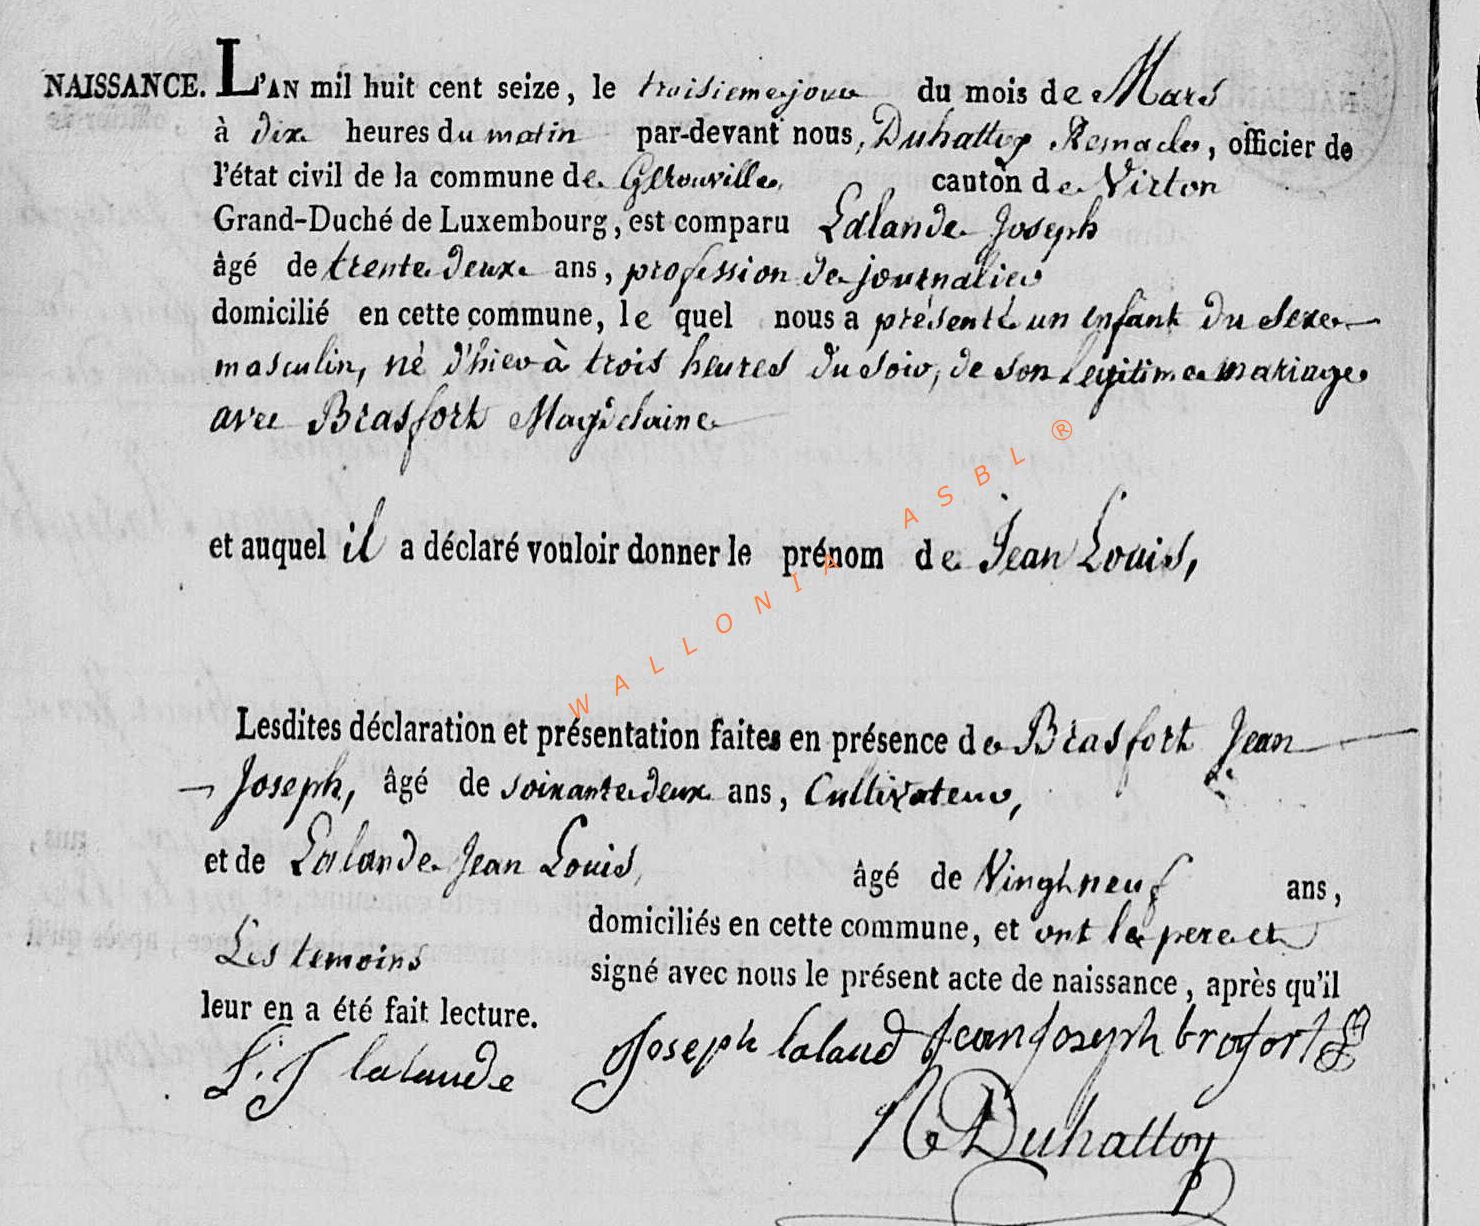 NAISSANCE. L'AN mil huit cent seize, le troisieme jour du mois de Mars
à dix heures du matin par-devant nous, Duhattoy Remacle, officier de
l'état civil de la commune de Gerouville, canton de Virton
Grand-Duché de Luxembourg, est comparu Lalande Joseph
âgé de trente deux ans, profession de journalier
domicilié en cette commune, le quel nous a présenté un enfant du sexe
masculin, né d'hier à trois heures du soir, de son legitime mariage
avec Brasfort Magdelaine
et auquel il a déclaré vouloir donner le prénom de Jean Louis,
WALLONIA ASBL ®
Lesdites déclaration et présentation faites en présence de Brasfort Jean
Joseph, âgé de soixante deux ans, Cultivateur,
et de Lalande Jean Louis, âgé de Vingt neuf ans,
domiciliés en cette commune, et ont le pere et
Les temoins signé avec nous le présent acte de naissance, après qu'il
leur en a été fait lecture.
Joseph laland Jean Joseph brofort
L. J lalande
Re Duhattoy